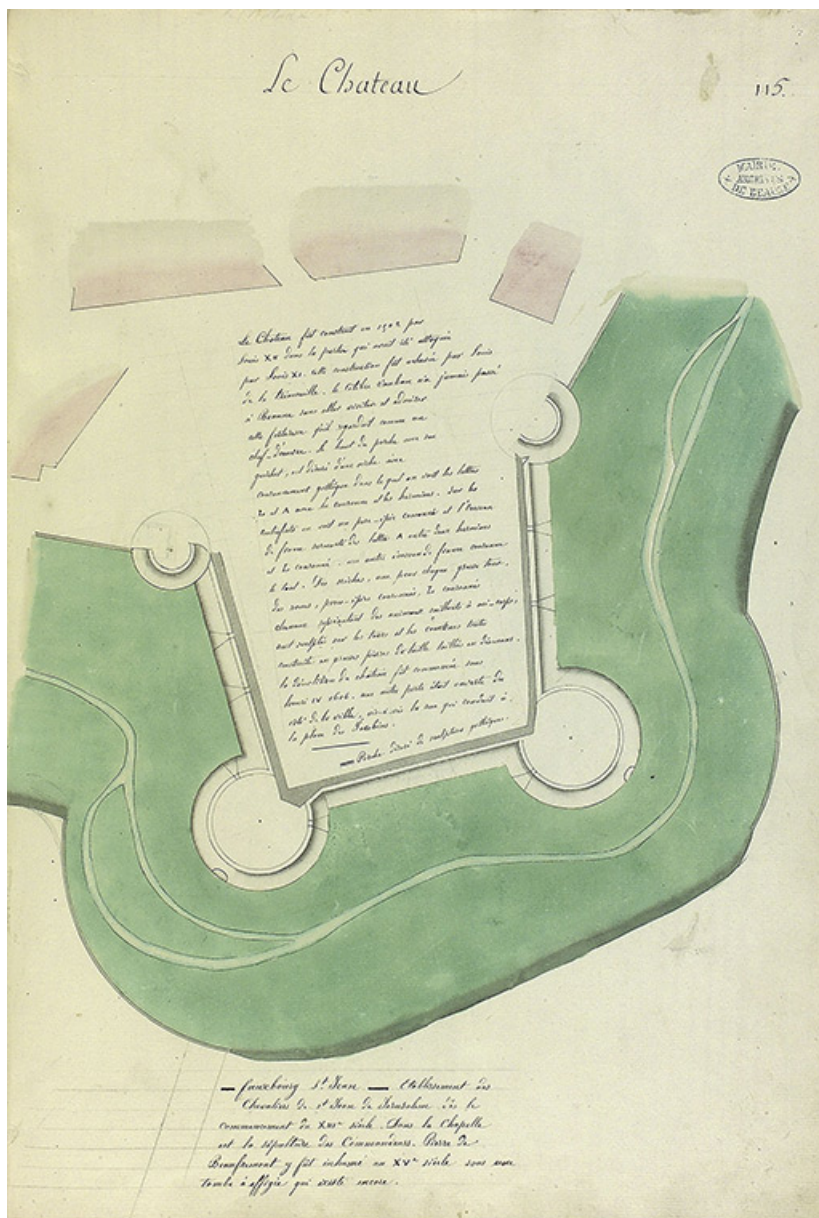 Le Chateau
115.
MAIRIE
ARCHIVES
DE BEAUNE
Le Chateau fût construit en 1502 par
Louis XII dans la partie qui avait été attaquée
par Louis XI. cette construction fût achevée par Louis
de la Trimouille. le célèbre Vauban n'a jamais passé
à Beaune sans aller visiter et admirer
cette forteresse qu'il regardait comme un
chef-d'œuvre. le haut du porche sur son
guichet, est décoré d'une niche avec
couronnement gothique dans lequel on voit les lettres
et A avec la couronne et les hermines. Sur les
on voit un porc-épic couronné et l'écusson
de France surmonté des lettres A entre deux hermines
et couronné. un autre écusson de France couronne
le tout. Des niches, une pour chaque grosse tour,
des roses, porcs-épics couronnés, couronnés
chacune représentant des animaux saillants à mi-corps,
sont sculptés sur les tours et les courtines toutes
construites en grosses pierres de taille taillées en
la démolition du château fût commencée sous
henri IV 1602. une autre porte était ouverte du
côté de la ville, vis-à-vis la rue qui conduit à
la place des Jacobins.
— Porche décoré de sculptures gothiques.
— fauxbourg St Jean — Etablissement des
Chevaliers de St Jean de Jérusalem dès le
commencement du siècle. Dans la Chapelle
est la sépulture des Commandeurs. Pierre de
Beaufremont y fût inhumé au XVe siècle sous une
tombe à effigie qui existe encore.